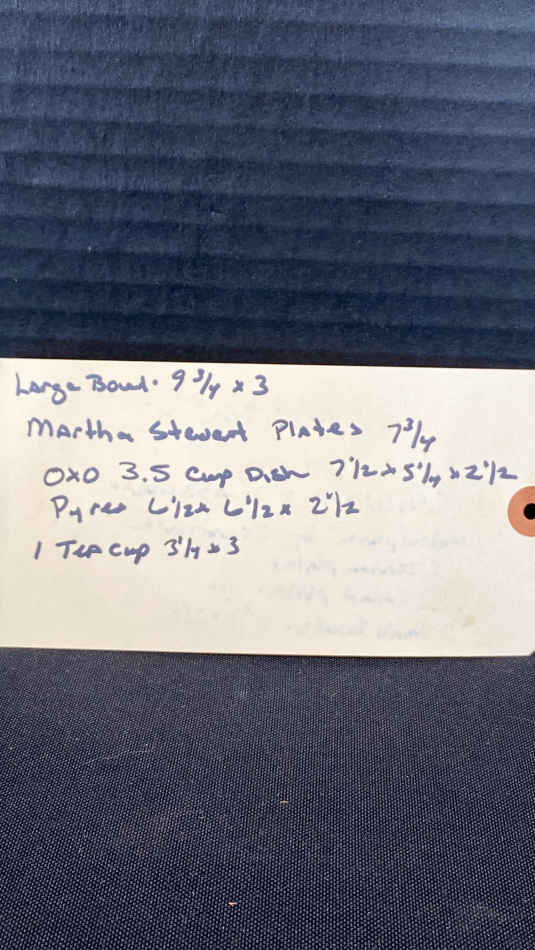 Large Bowl. 9 3/4 x 3
Martha Stewart Plates 7 3/4
OXO 3.5 Cup Dish 7 1/2 x 5 1/4 x 2 1/2
Pyrex 6 1/2 x 6 1/2 x 2 1/2
1 Tea cup 3 1/4 x 3